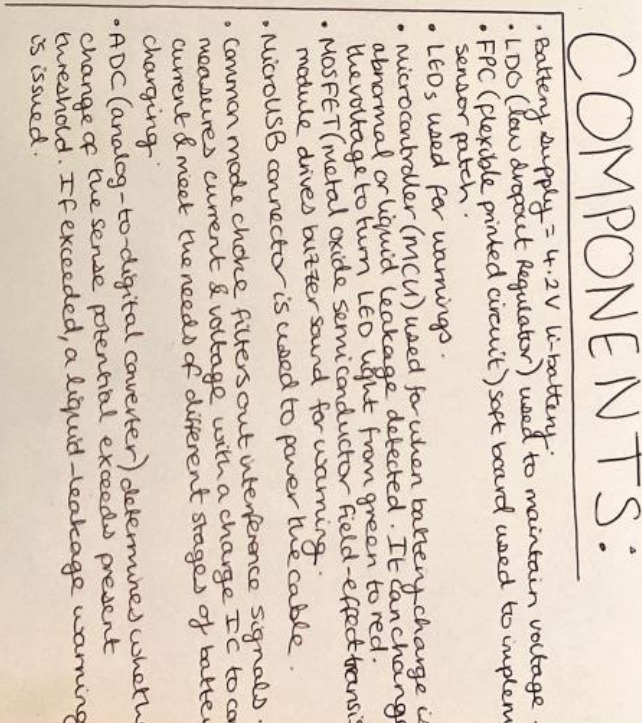 COMPONENTS:
• Battery supply = 4.2V li-battery.
• LDO (low dropout Regulator) used to maintain voltage
• FPC (flexible printed circuit) soft board used to implem
sensor patch.
• LEDs used for warnings.
• Microcontroller (MCU) used for when battery charge is
abnormal or liquid leakage detected. It can change
the voltage to turn LED light from green to red.
• MOSFET (metal oxide semiconductor field-effect transis
module drives buzzer sound for warning.
• MicroUSB connector is used to power the cable.
• Common mode choke filters out interference signals.
measures current & voltage with a charge IC to co
current & meet the needs of different stages of batte
charging.
• ADC (analog-to-digital converter) determines wheth
change of the sense potential exceeds present
threshold. If exceeded, a liquid-leakage warning
is issued.